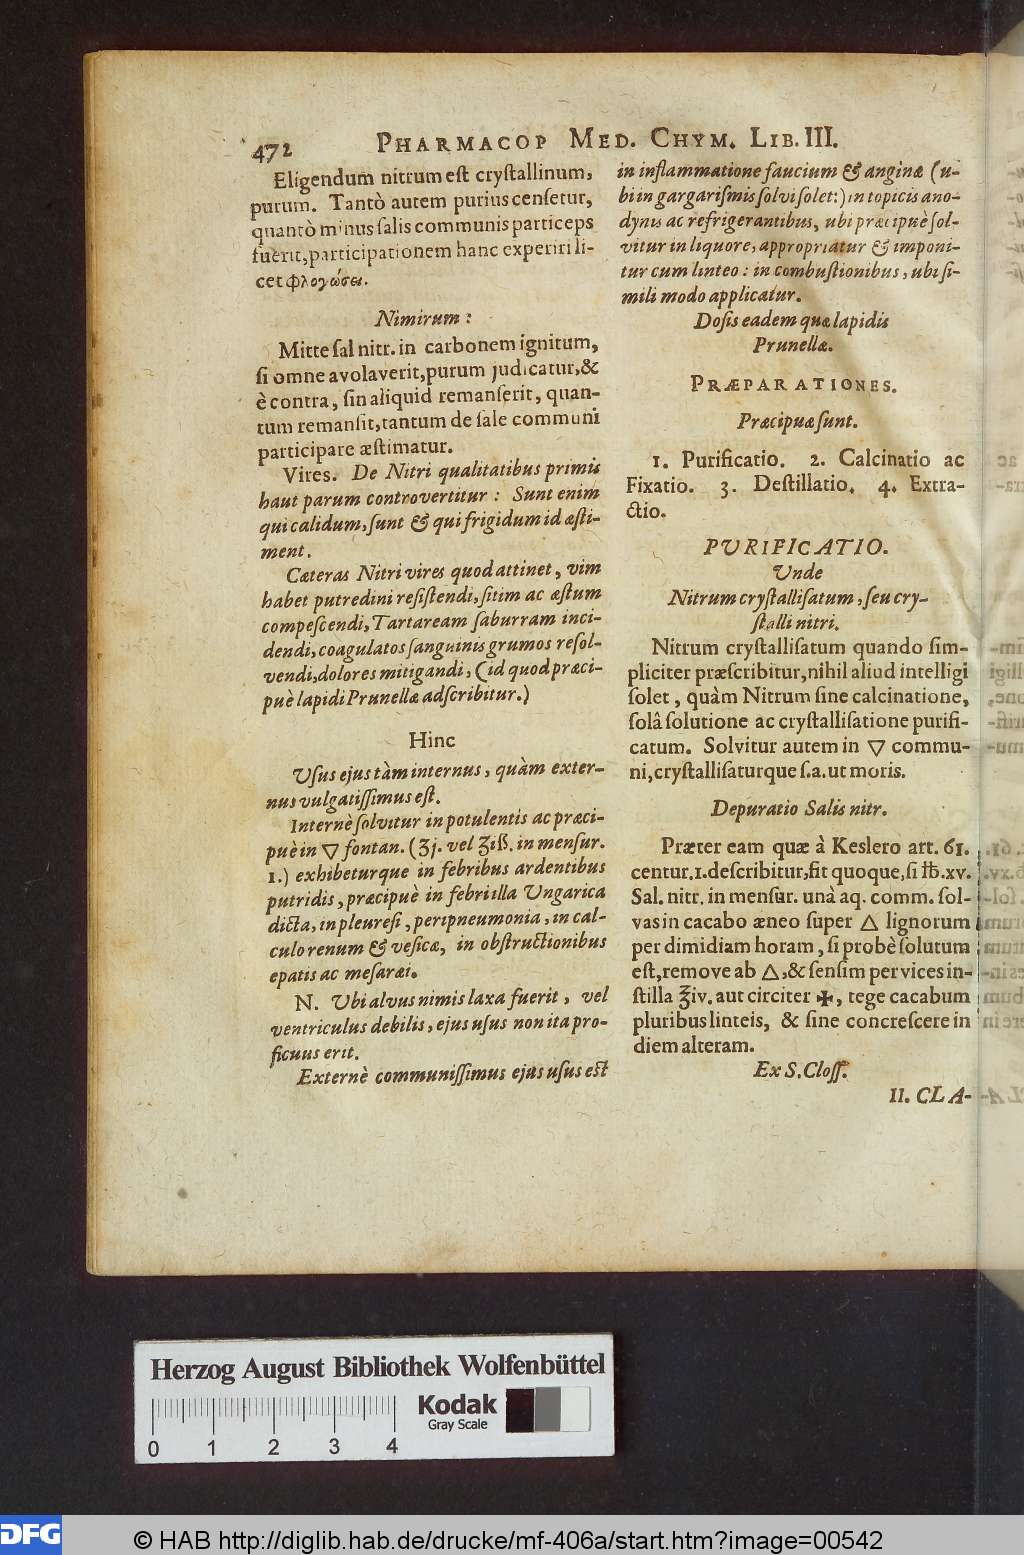 472 PHARMACOP MED. CHYM. LIB. III.
Eligendum nitrum eſt cryſtallinum,
purum. Tantò autem purius cenſetur,
quantò minus ſalis communis particeps
fuerit, participationem hanc experiri li-
cet φλογώσει.
Nimirum:
Mitte ſal nitr. in carbonem ignitum,
ſi omne avolaverit, purum judicatur, &
è contra, ſin aliquid remanſerit, quan-
tum remanſit, tantum de ſale communi
participare æſtimatur.
Vires. De Nitri qualitatibus primis
haut parum controvertitur: Sunt enim
qui calidum, ſunt & qui frigidum id æſti-
ment.
Cæteras Nitri vires quod attinet, vim
habet putredini reſiſtendi, ſitim ac æſtum
compeſcendi, Tartaream ſaburram inci-
dendi, coagulatos ſanguinis grumos reſol-
vendi, dolores mitigandi, (id quod præci-
puè lapidi Prunellæ adſcribitur.)
Hinc
Uſus ejus tàm internus, quàm exter-
nus vulgatiſſimus eſt.
Internè ſolvitur in potulentis ac præci-
puè in 🜄 fontan. (ʒj. vel ʒiß. in menſur.
1.) exhibeturque in febribus ardentibus
putridis, præcipuè in febri illa Ungarica
dicta, in pleureſi, peripneumonia, in cal-
culo renum & veſicæ, in obſtructionibus
epatis ac meſaræi.
N. Ubi alvus nimis laxa fuerit, vel
ventriculus debilis, ejus uſus non ita pro-
ficuus erit.
Externè communiſſimus ejus uſus eſt
in inflammatione faucium & anginæ (u-
bi in gargariſmis ſolvi ſolet:) in topicis ano-
dynis ac refrigerantibus, ubi præcipuè ſol-
vitur in liquore, appropriatur & imponi-
tur cum linteo: in combuſtionibus, ubi ſi-
mili modo applicatur.
Doſis eadem quæ lapidis
Prunellæ.
PRÆPARATIONES.
Præcipuæ ſunt.
1. Purificatio. 2. Calcinatio ac
Fixatio. 3. Deſtillatio. 4. Extra-
ctio.
PURIFICATIO.
Unde
Nitrum cryſtalliſatum, ſeu cry-
ſtalli nitri.
Nitrum cryſtalliſatum quando ſim-
pliciter præſcribitur, nihil aliud intelligi
ſolet, quàm Nitrum ſine calcinatione,
ſolâ ſolutione ac cryſtalliſatione purifi-
catum. Solvitur autem in 🜄 commu-
ni, cryſtalliſaturque ſ. a. ut moris.
Depuratio Salis nitr.
Præter eam quæ à Keslero art. 61.
centur. 1. deſcribitur, fit quoque, ſi ℔. xv.
Sal. nitr. in menſur. unà aq. comm. ſol-
vas in cacabo æneo ſuper 🜂 lignorum
per dimidiam horam, ſi probè ſolutum
eſt, remove ab 🜂, & ſenſim per vices in-
ſtilla ℥iv. aut circiter ✠, tege cacabum
pluribus linteis, & ſine concreſcere in
diem alteram.
Ex S. Cloſſ.
II. CLA-
Herzog August Bibliothek Wolfenbüttel
Kodak
Gray Scale
0 1 2 3 4
DFG © HAB http://diglib.hab.de/drucke/mf-406a/start.htm?image=00542